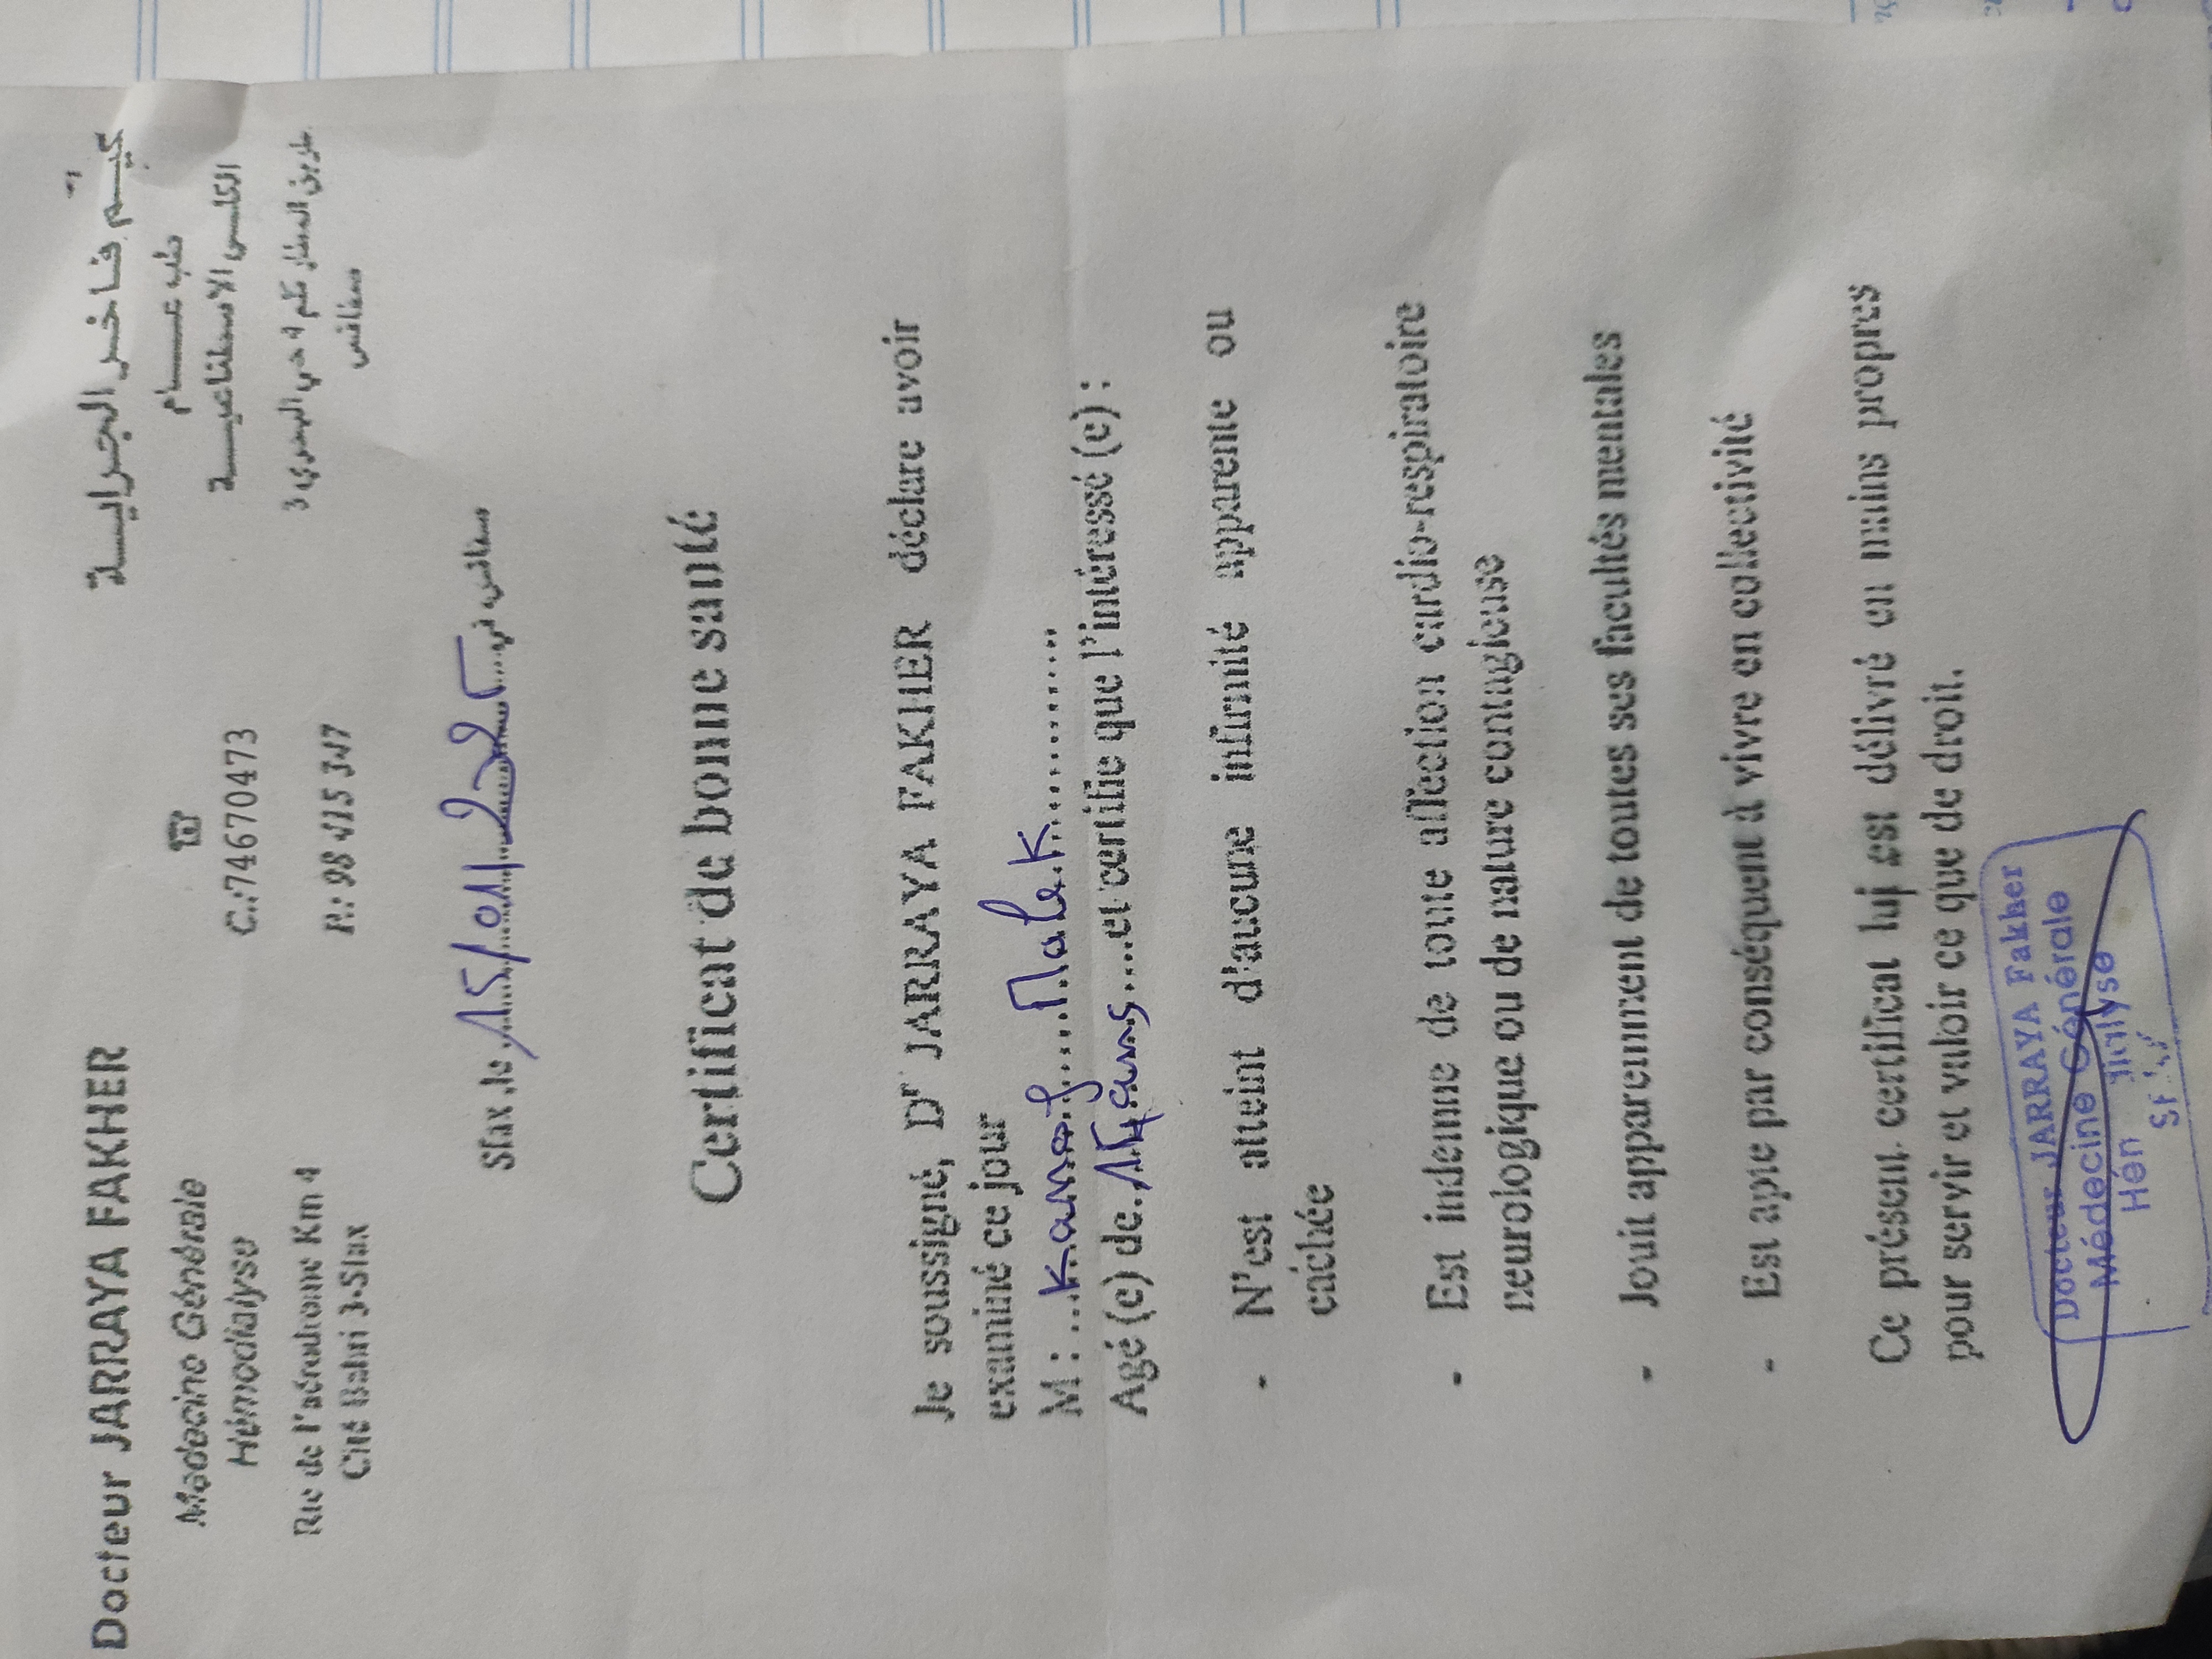 Docteur JARRAYA FAKHER
Médecine Générale
Hémodialyse
Rte de l'aérodrome Km 4
Cité Bahri 3-Sfax
☎
C.:74670473
R.: 98 415 347
كيّم فاخر الجراية
طب عام
الكلى الاصطناعية
طريق المطار كلم 4 حي البحري 3
صفاقس
Sfax ,le 15/01/225 صفاقس في
Certificat de bonne santé
Je soussigné, Dr JARRAYA FAKHER déclare avoir
examiné ce jour
M : Malek
Agé (e) de 14 ans et certifie que l'intéressé (e) :
- N'est atteint d'aucune infirmité apparente ou
cachée
- Est indemne de toute affection cardio-respiratoire
neurologique ou de nature contagieuse
- Jouit apparemment de toutes ses facultés mentales
- Est apte par conséquent à vivre en collectivité
Ce présent certificat lui est délivré en mains propres
pour servir et valoir ce que de droit.
Docteur JARRAYA Fakher
Médecine Générale